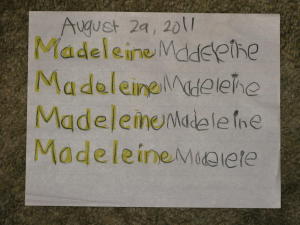 August 29, 2011
Madeleine Madeleine
Madeleine Madeleine
Madeleine Madeleine
Madeleine Madeleie